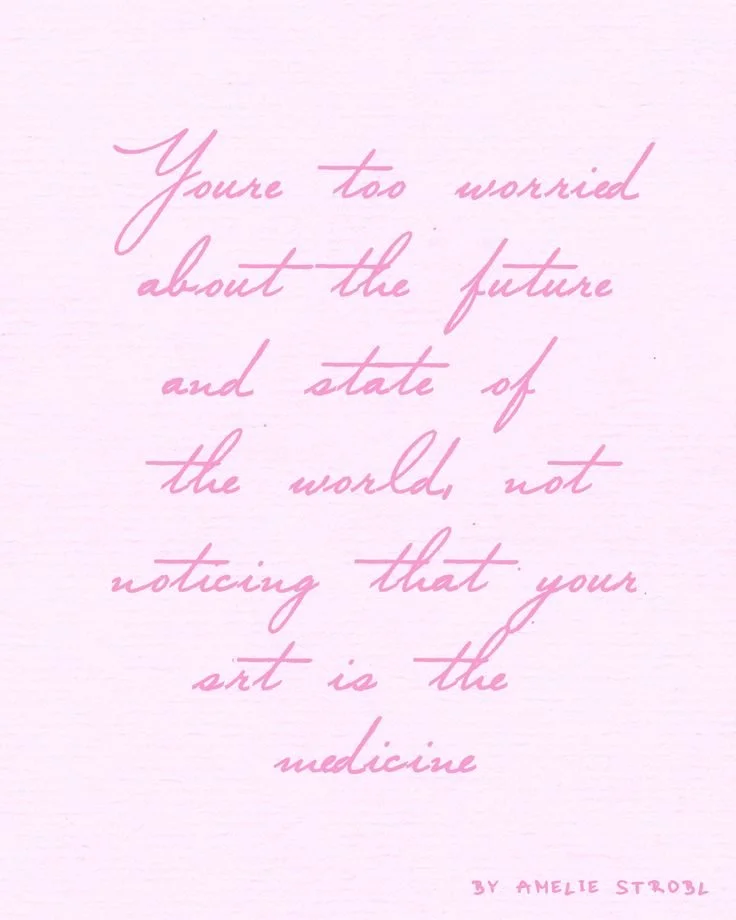 Youre too worried
about the future
and state of
the world, not
noticing that your
srt is the
medicine
BY AMELIE STROBL